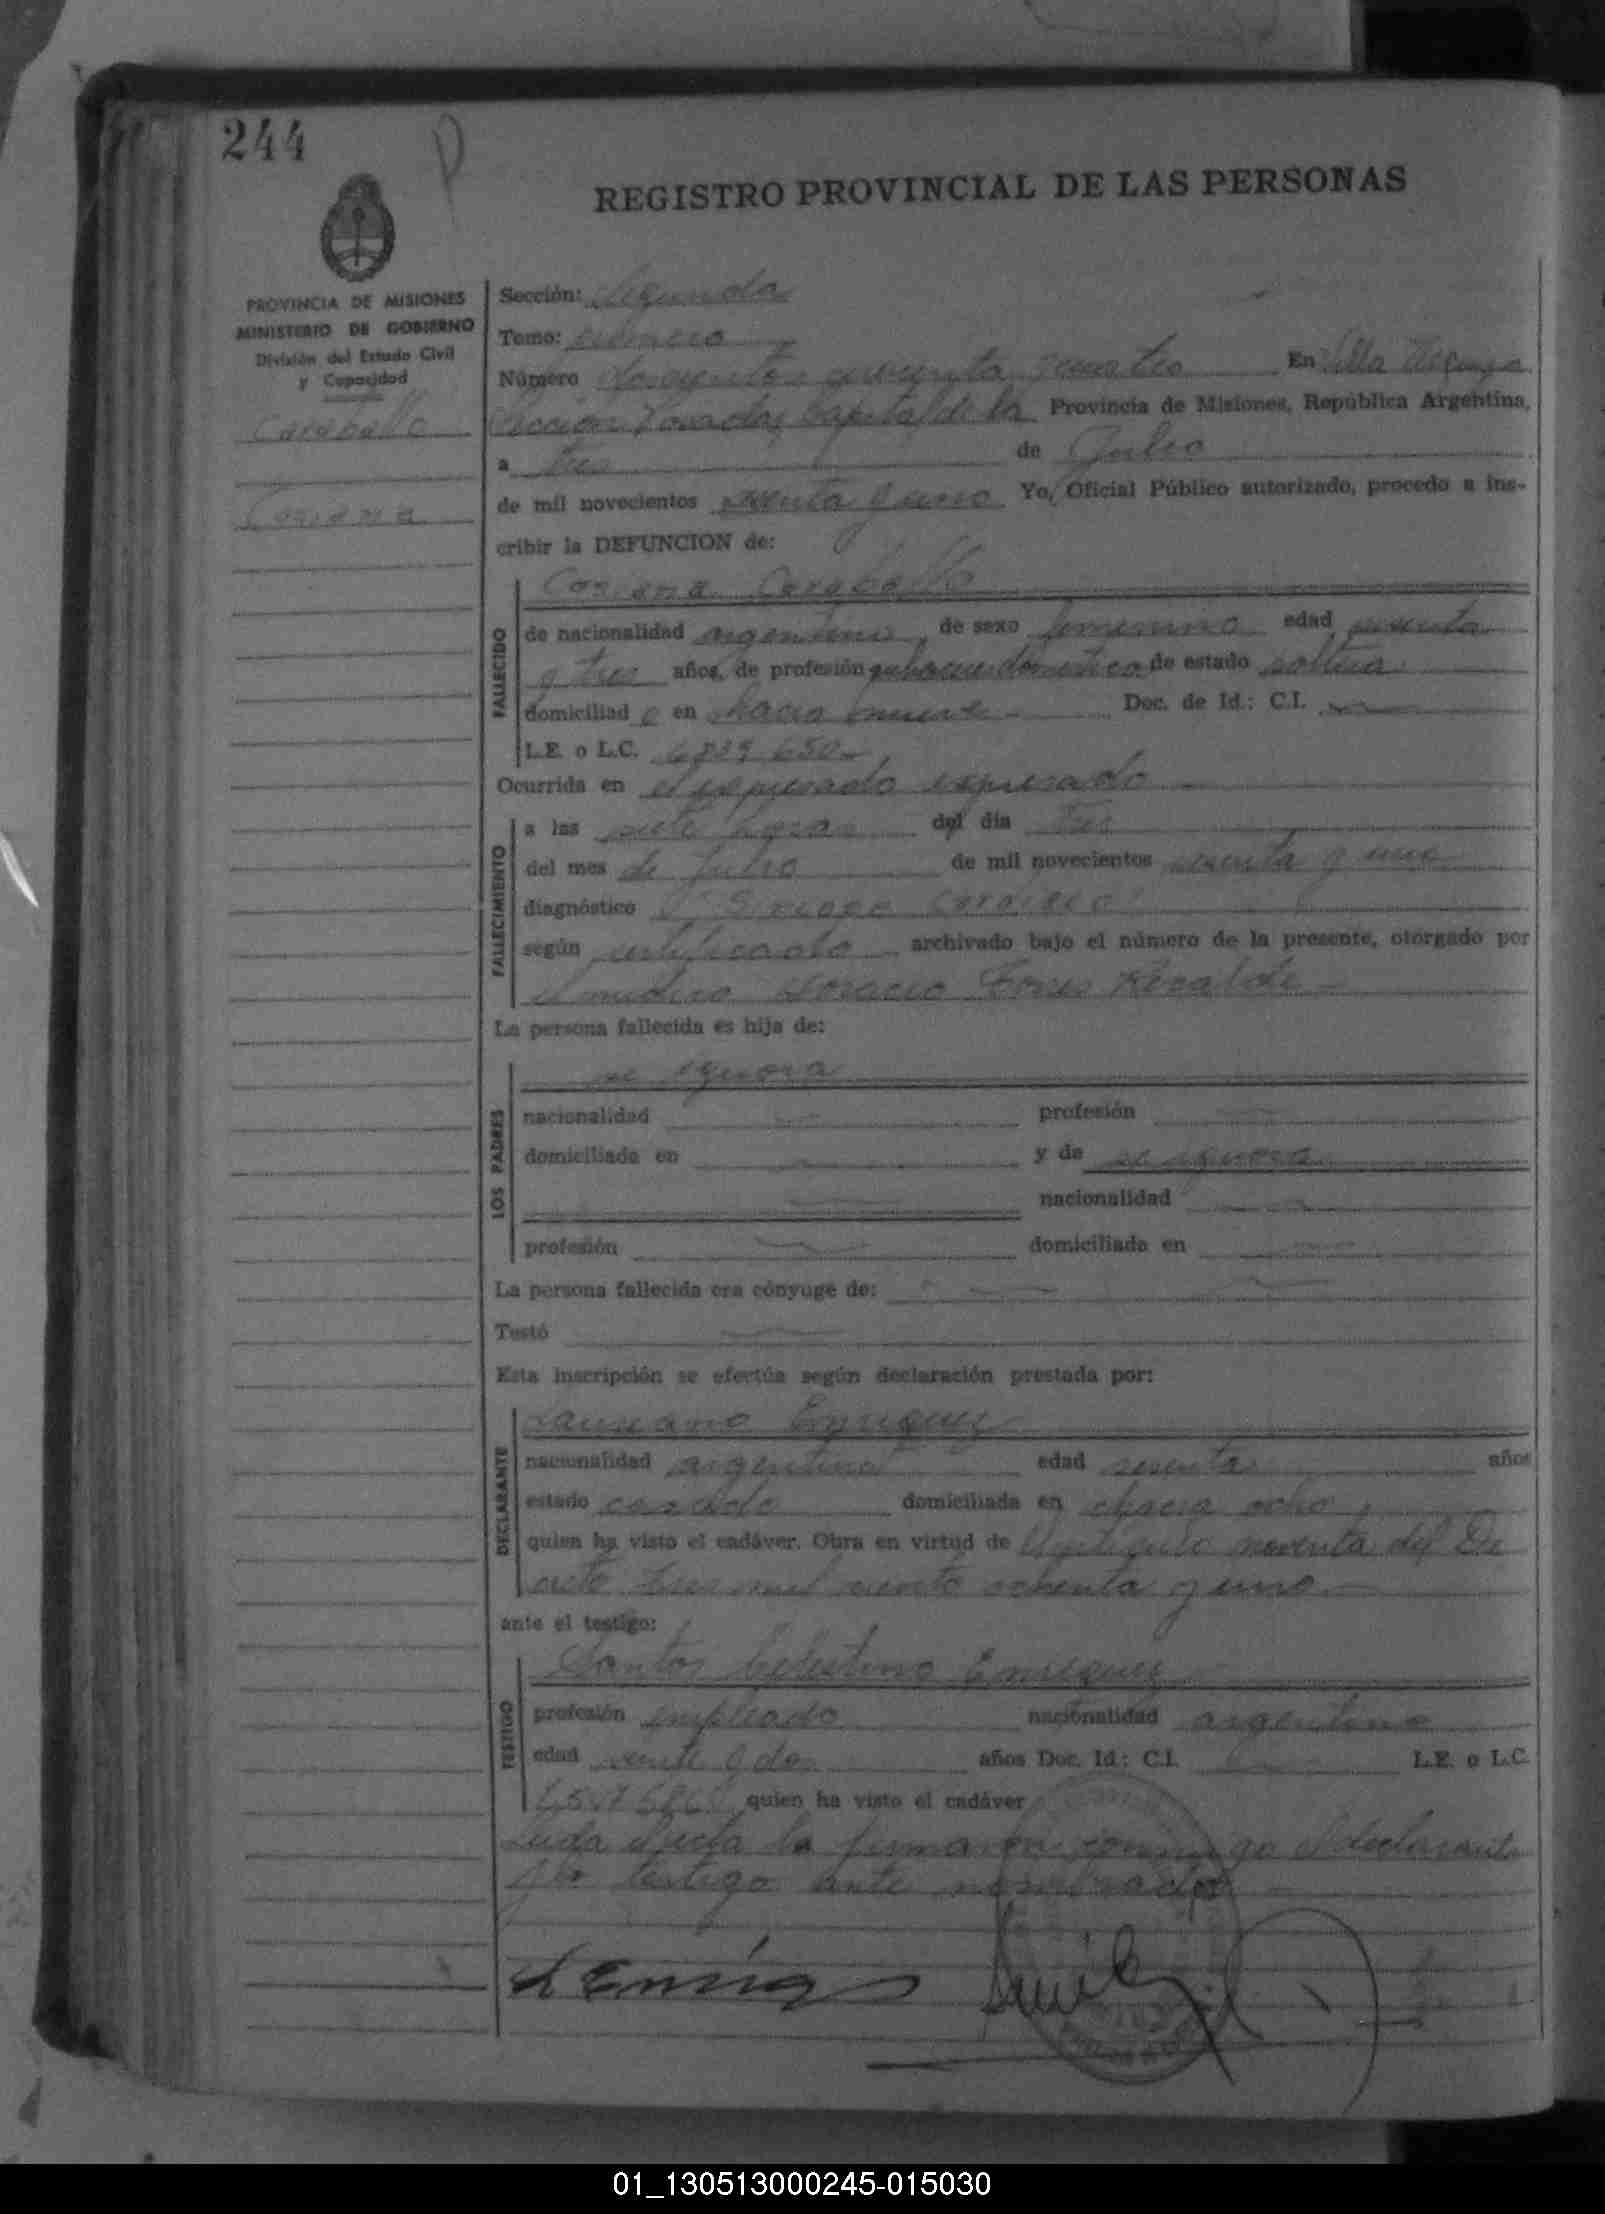 244
REGISTRO PROVINCIAL DE LAS PERSONAS
PROVINCIA DE MISIONES
MINISTERIO DE GOBIERNO
División del Estado Civil
y Capacidad
Caraballo
Sección: Segunda
Tomo: primero
Número doscientos cuarenta cuatro En Villa
Sección Posadas Capital de la Provincia de Misiones, República Argentina,
a tres de Julio
de mil novecientos sesenta y uno Yo, Oficial Público autorizado, procedo a ins-
cribir la DEFUNCION de:
Caraballo
FALLECIDO
de nacionalidad argentina de sexo femenino edad sesenta
y tres años, de profesión quehaceres domesticos de estado soltera
domiciliad a en chacra nueve Doc. de Id.: C.I.
L.E. o L.C.
Ocurrida en el expresado expresado
FALLECIMIENTO
a las siete horas del día Tres
del mes de Julio de mil novecientos sesenta y uno
diagnóstico Sincope Cardiaco
según certificado archivado bajo el número de la presente, otorgado por
el medico Horacio
La persona fallecida es hija de:
LOS PADRES
se ignora
nacionalidad profesión
domiciliada en y de se ignora
nacionalidad
profesión domiciliada en
La persona fallecida era cónyuge de:
Testó
Esta inscripción se efectúa según declaración prestada por:
DECLARANTE
Laureano Enriquez
nacionalidad argentino edad sesenta años
estado casado domiciliada en chacra ocho
quien ha visto el cadáver. Obra en virtud de articulo noventa del De
creto tres mil ciento ochenta y uno
ante el testigo:
TESTIGO
Santos Celestino Enriquez
profesión empleado nacionalidad argentino
edad veinte y dos años Doc. Id.: C.I. L.E. o L.C.
quien ha visto el cadáver
Leida el acta la firmaron conmigo el declarante
y testigo ante nombrados
01_130513000245-015030